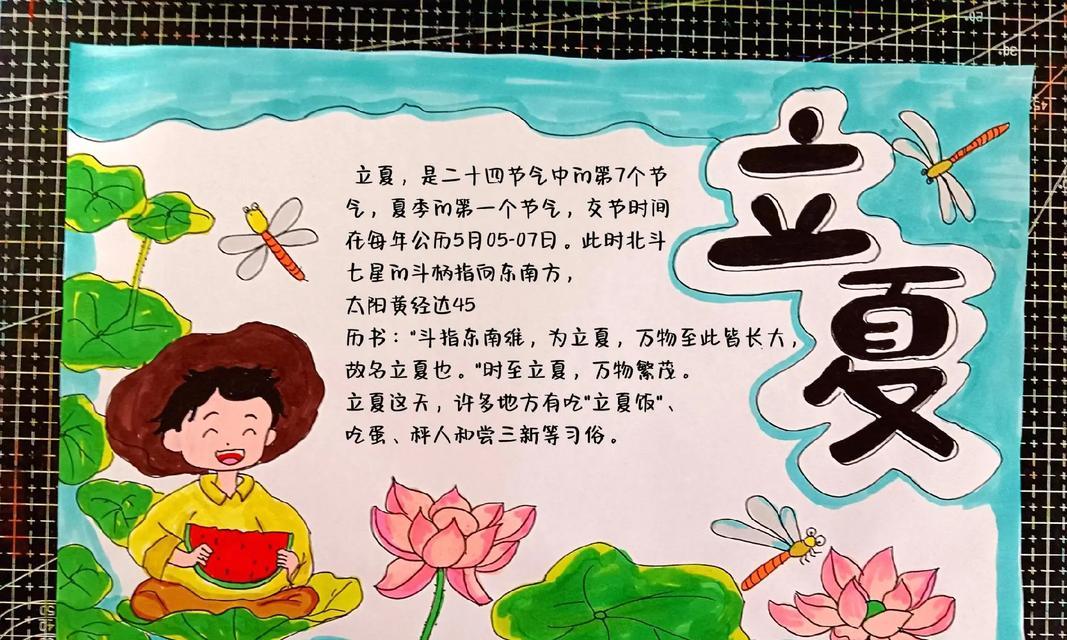 立夏
立夏，是二十四节气中的第7个节
气，夏季的第一个节气，交节时间
在每年公历5月05-07日。此时北斗
七星的斗柄指向东南方，
太阳黄经达45
历书："斗指东南维，为立夏，万物至此皆长大，
故名立夏也。"时至立夏，万物繁茂。
立夏这天，许多地方有吃"立夏饭"、
吃蛋、秤人和尝三新等习俗。